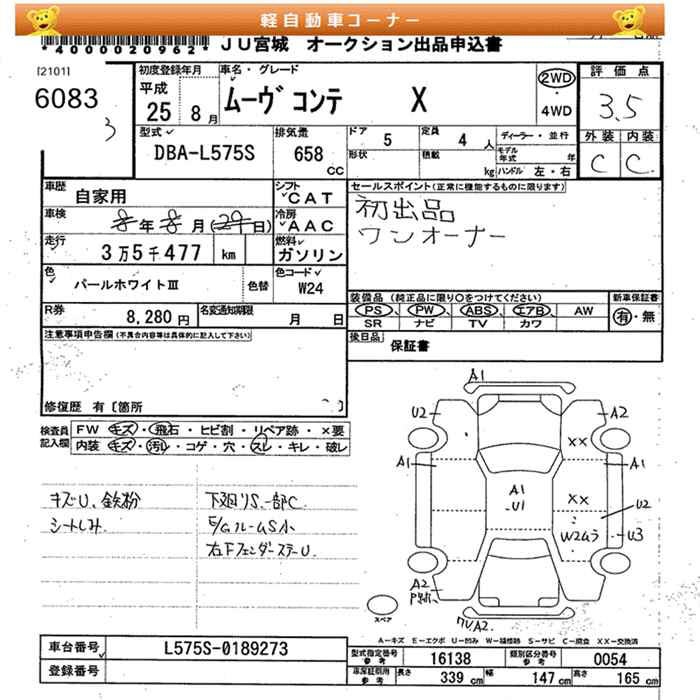 軽自動車コーナー
*40000020962*
JU宮城 オークション出品申込書
[2101]
6083
3
初度登録年月
平成
25 8 月
車名・グレード
ムーヴ コンテ X
2WD
・
4WD
評価点
3.5
外装 内装
C C
型式
DBA-L575S
排気量
658
CC
ドア 5
定員 4 人
形状
積載 kg
ディーラー・並行
モデル年式 年
ハンドル 左・右
車歴
自家用
シフト
CAT
セールスポイント(正常に機能するものに限ります)
初出品
ワンオーナー
車検
8年 8月 (29日)
冷房
AAC
走行
3万5千477 km
燃料
ガソリン
色
パールホワイトⅢ
色替
色コード
W24
装備品 (純正品に限り〇をつけてください)
新車保証書
PS PW ABS エアB AW
SR ナビ TV カワ
有・無
R券
8,280 円
名変通知期限
月 日
後日品
保証書
注意事項申告欄(不具合内容等は具体的に記入して下さい)
修復歴 有〔箇所 〕
検査員
記入欄
FW キズ・飛石・ヒビ割・リペア跡・×要
内装 キズ・汚レ・コゲ・穴・スレ・キレ・破レ
キズU、鉄粉
シートしみ.
下廻りS.一部C.
E/GルームS小
右FフェンダーステーU.
A1
U2
A2
××
A1
A1
A1
U1
××
U2
W2ムラ
U3
A2
A2.
スペア
A-キズ E-エクボ U-凹み W-補修跡 S-サビ C-腐食 XX-交換済
車台番号
L575S-0189273
登録番号
型式指定番号
参考
16138
類別区分番号
参考
0054
車庫証明用
参考
長さ 339 cm
幅 147 cm
高さ 165 cm